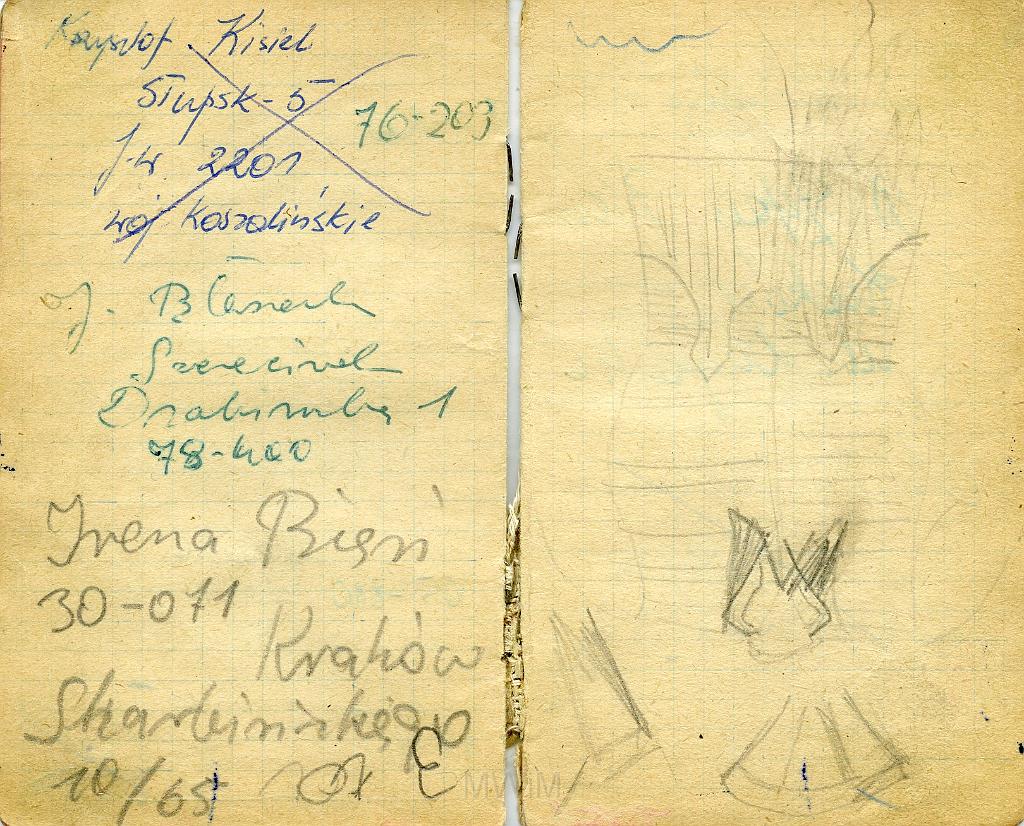 Krzysztof Kisiel
Słupsk-5
76-203
J.w 2201
woj Koszalińskie
J.
Szczecinek
1
78-400
Irena Bień
30-071
Kraków
Skarbińskiego
10/65
MWM